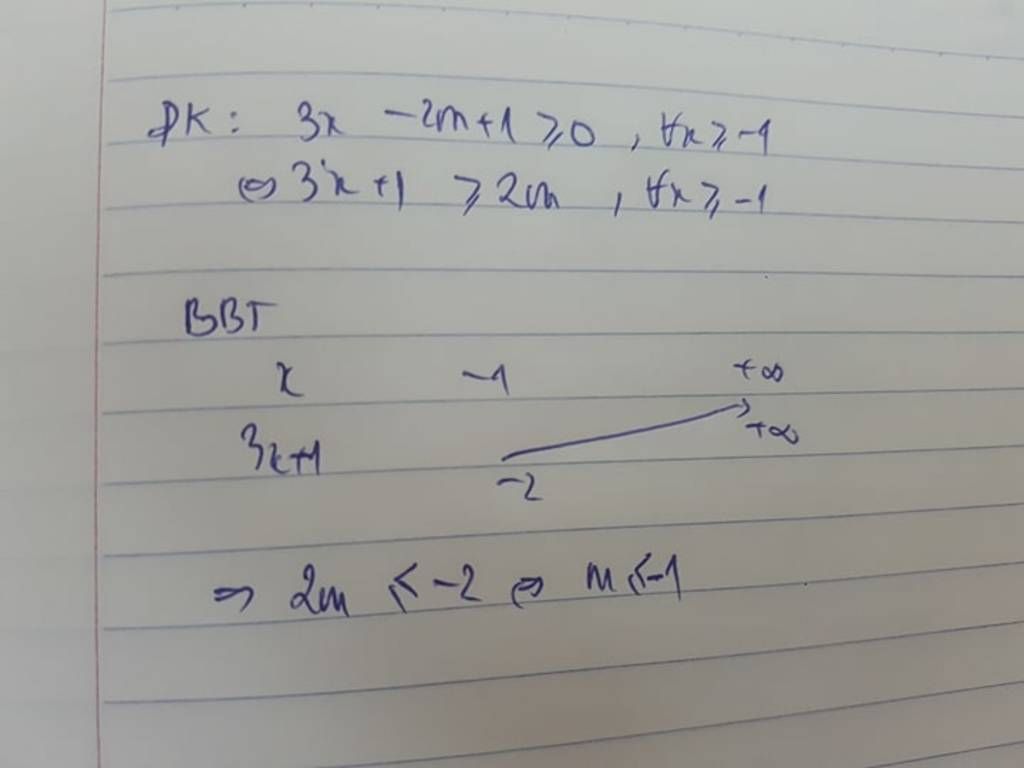 ĐK: 3x - 2m + 1 ⩾ 0, ∀x ⩾ -1
⇔ 3x + 1 ⩾ 2m, ∀x ⩾ -1
BBT
x -1 +∞
3x+1 -2 +∞
⇒ 2m ⩽ -2 ⇔ m ⩽ -1